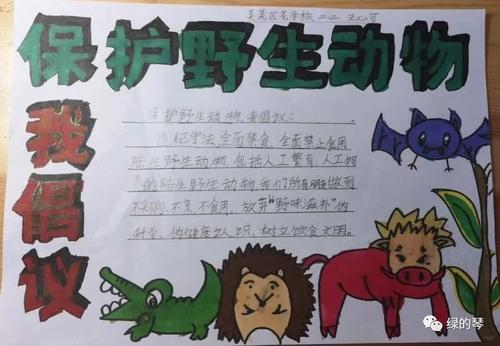 保护野生动物
我倡议
保护野生动物,我倡议:
纪守法,全面禁食、全面禁止食用
陆生野生动物,包括人工繁育、人工饲
的陆生野生动物,我们所有朋做到
不购、不烹、不食用,放弃"野味滋补"伪
科学、伪健康之识,树立饮食文明。
绿的琴